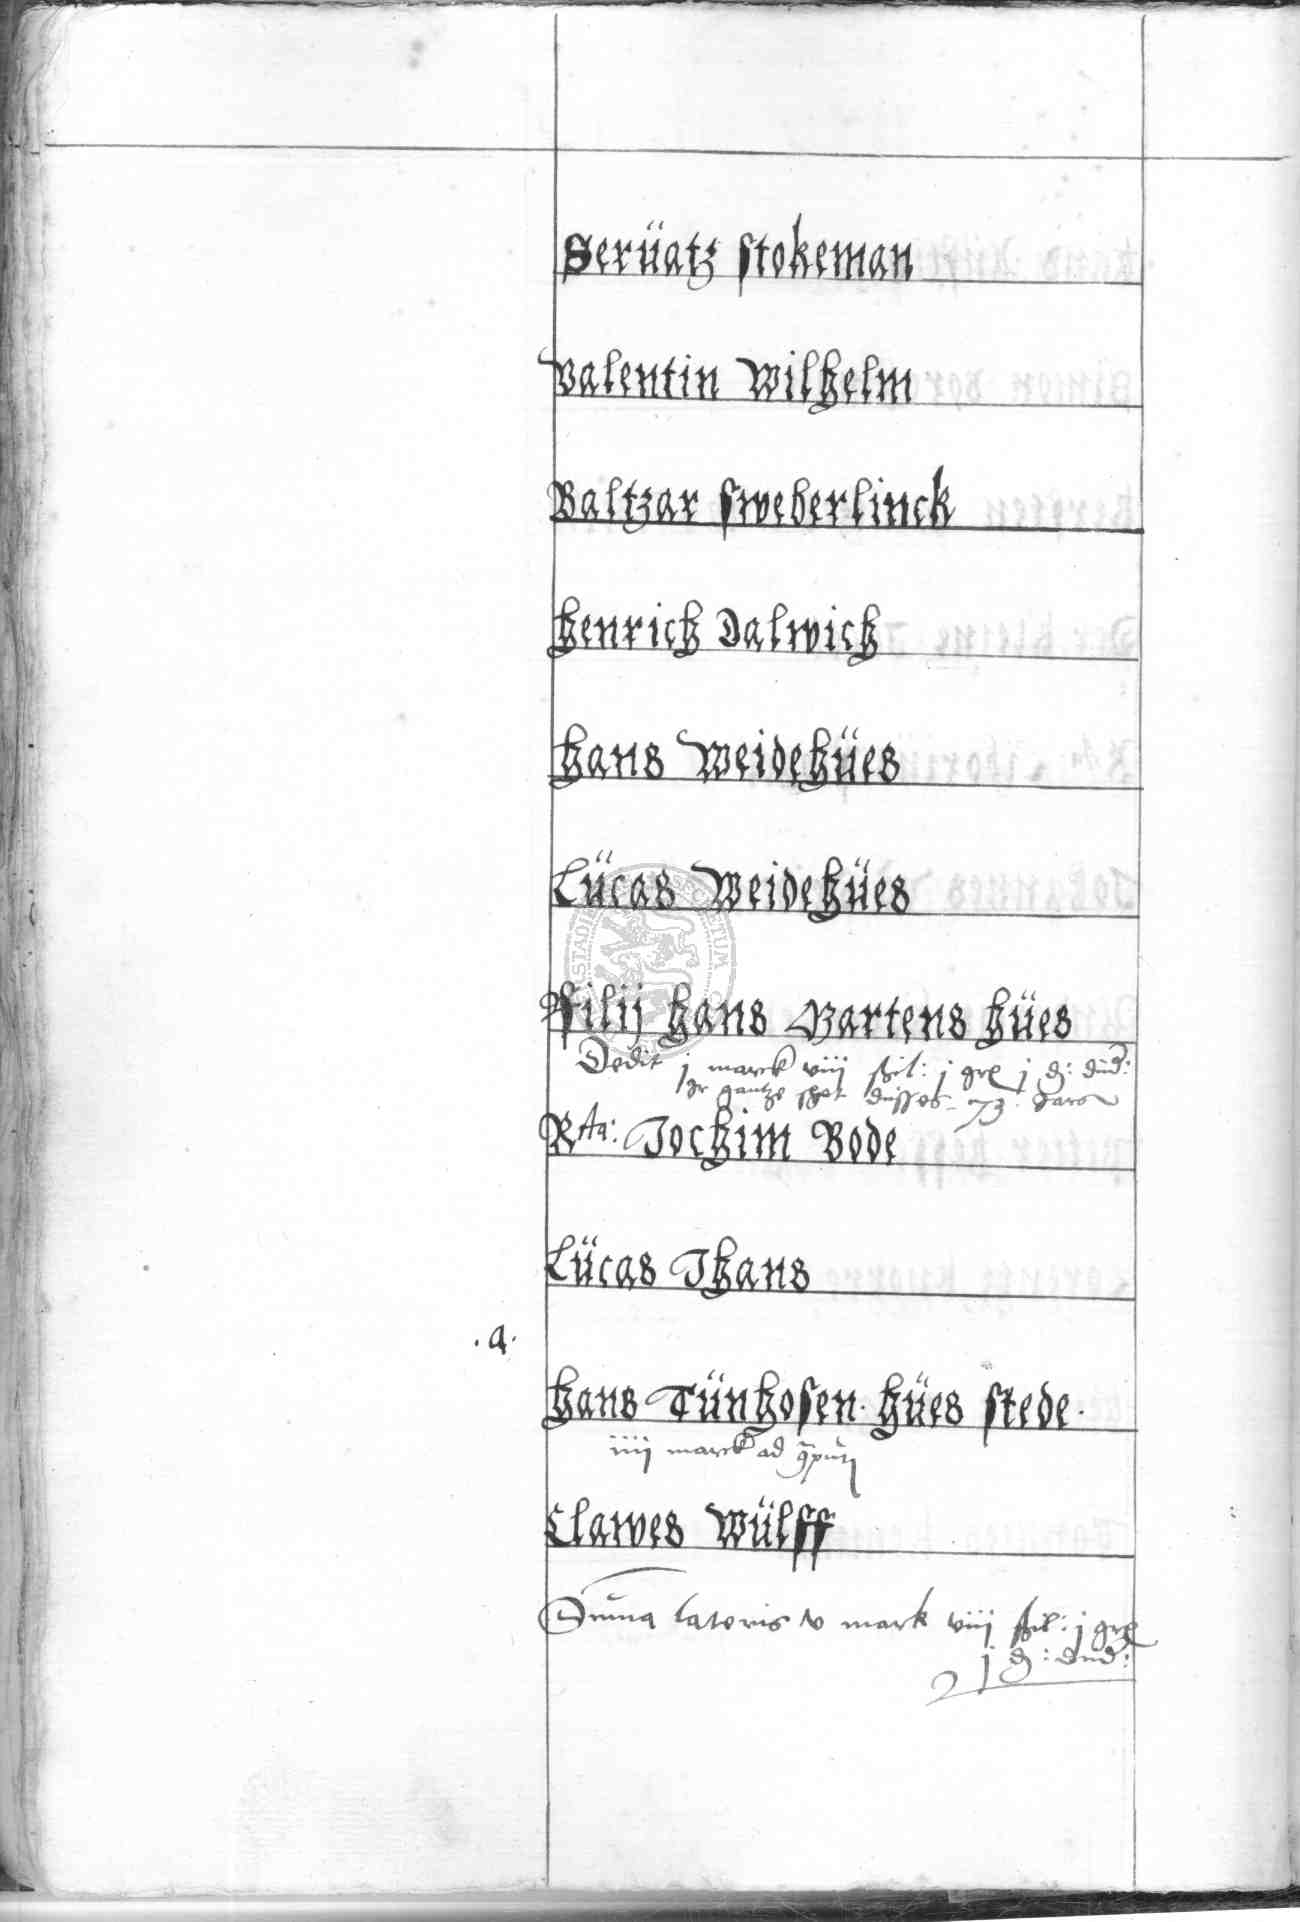 Serüatz stokeman
Valentin Wilhelm
Baltzar sweberlinck
Henrich Dalwich
Hans Weidehües
Lücas Weidehües
Filij Hans Bartens hües
Dedit j marck viij schil: j grß j d:
gantze schot düsses 73.
Jochim Bode
Lücas Thans
.a.
Hans Tünhosen. hües stede.
iiij marck ad
Clawes Wülff
Sum̃a lateris v mark viij schil: j grß
j d: